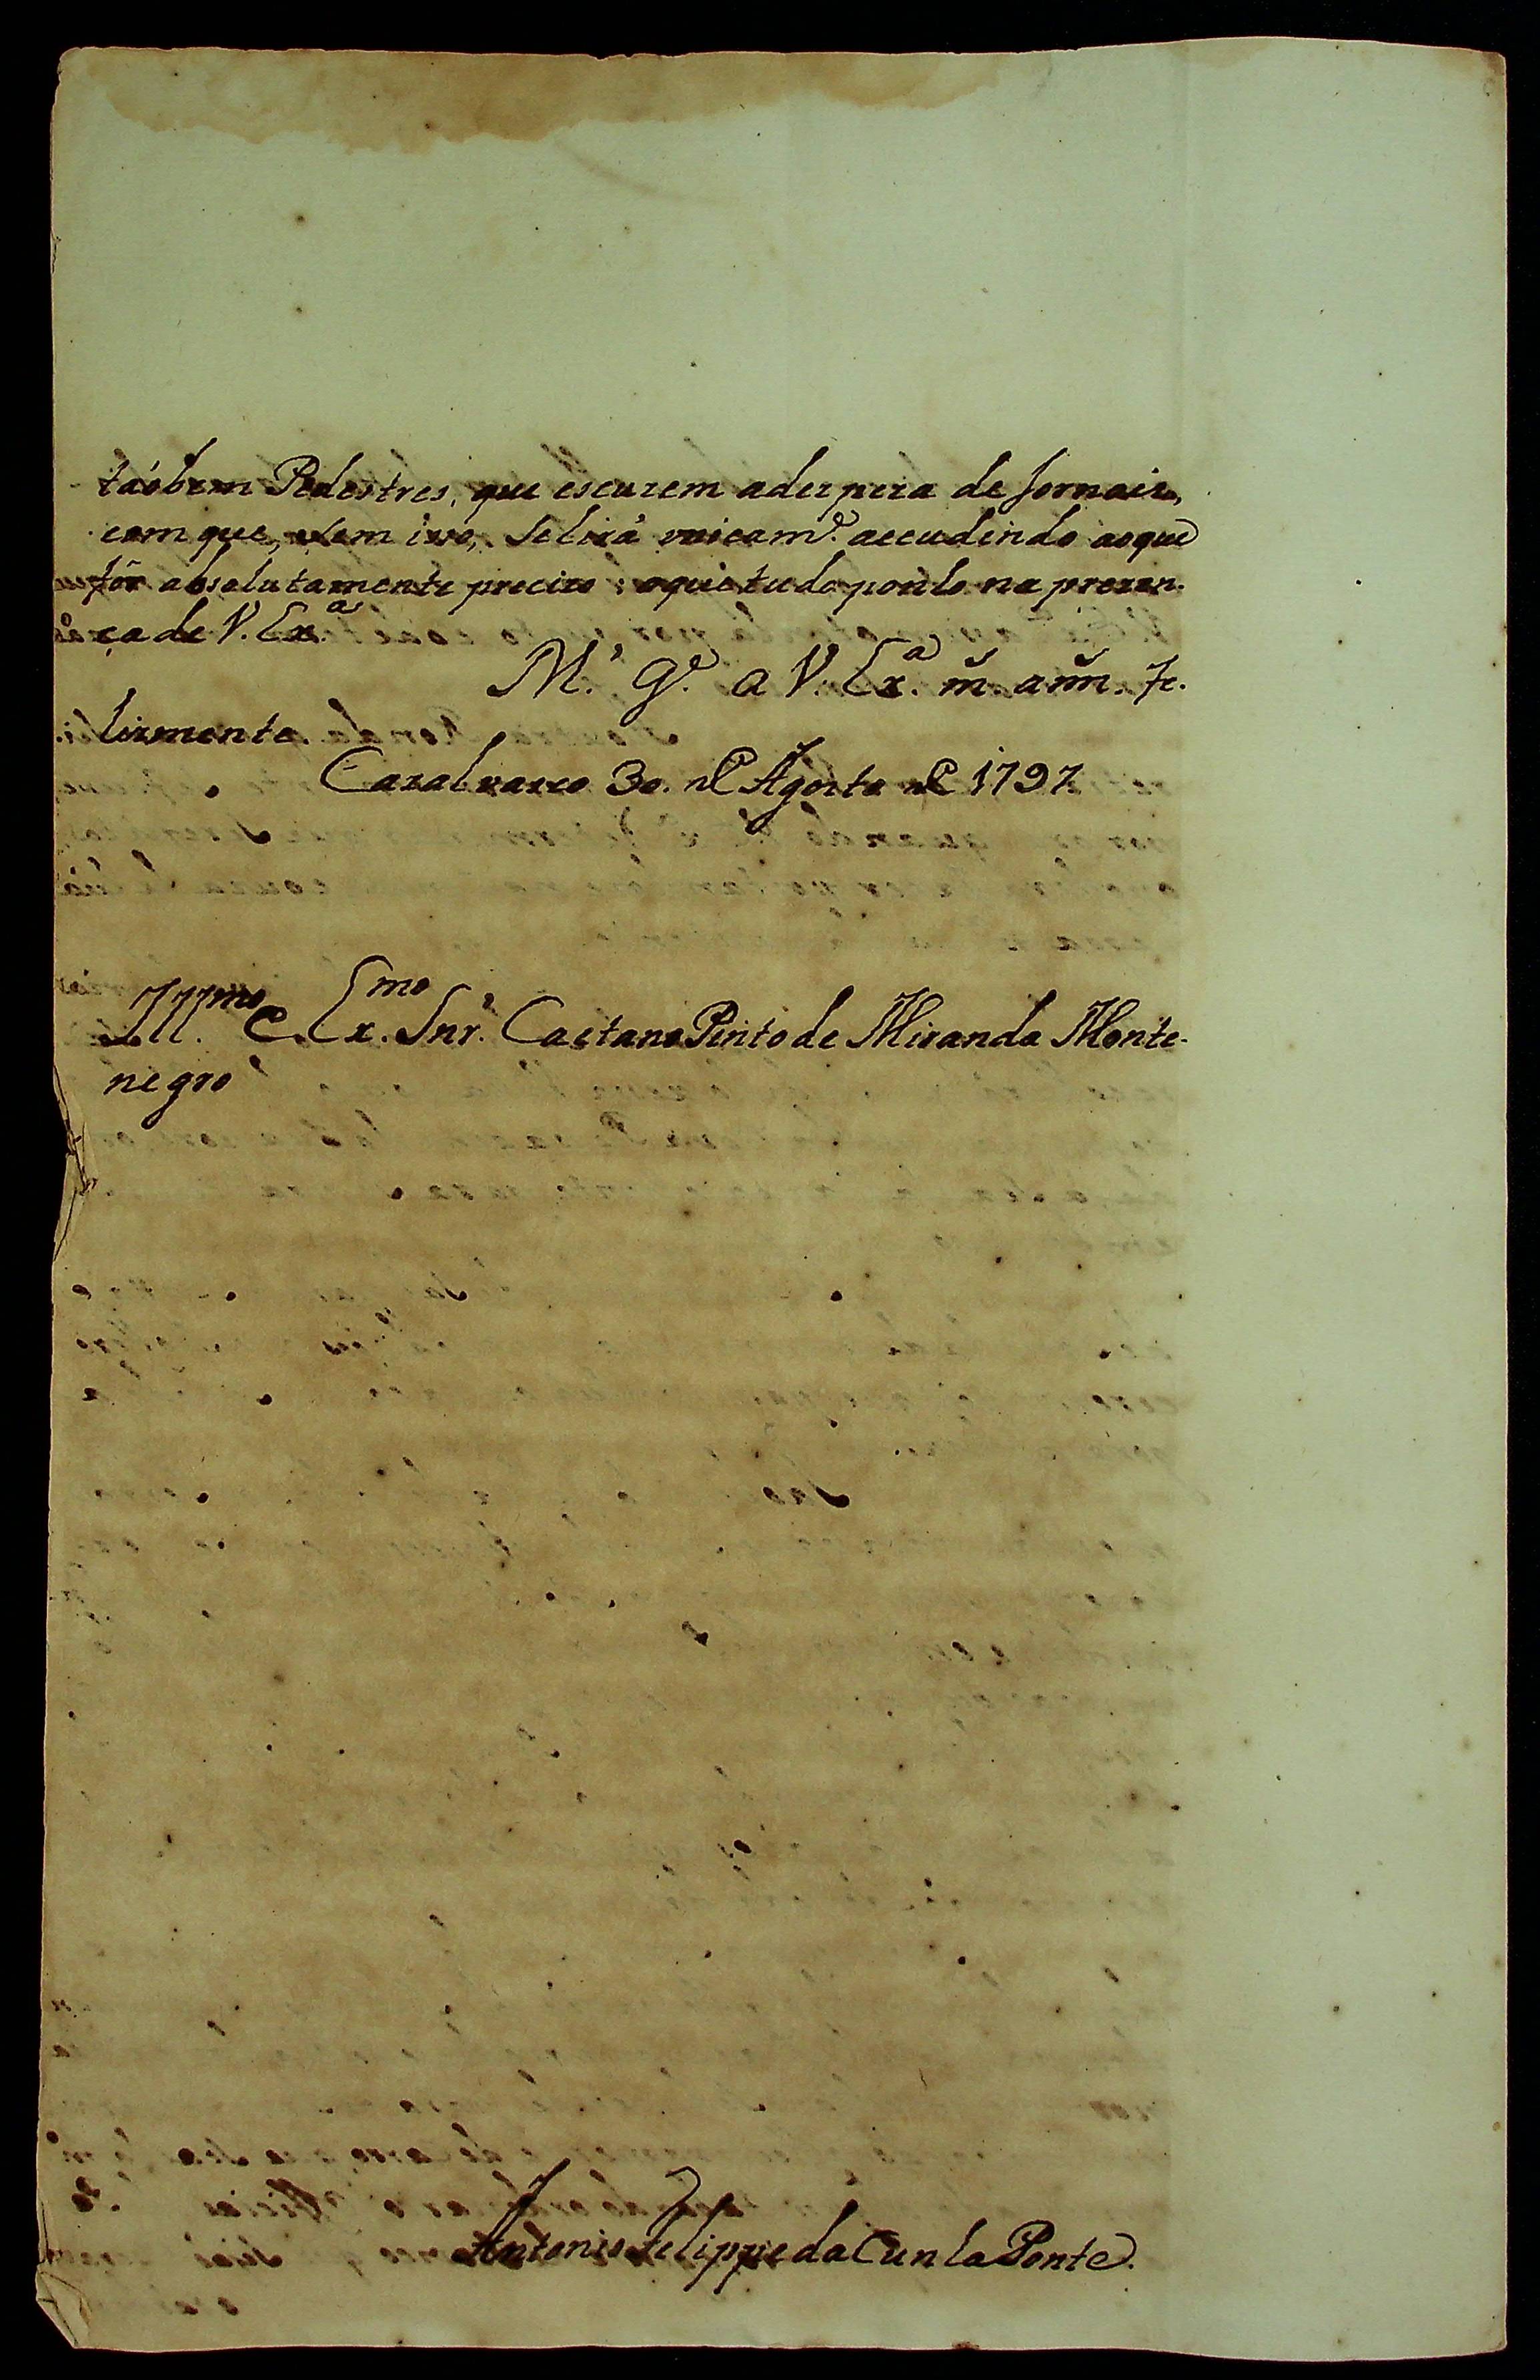 taóbem Pedestres, que escuzem adezpeza de Jornais,
com que, e sem isso, Sehirá unicam.e accudindo aoque
fôr absolutamente precizo: oquetudo ponho na prezen-
ça de V. Ex.a
M.s G.e a V. Ex.a m.s ann.s Fe-
lizmente.
Cazalvasco 30. de Agosto de 1797
Ill.mo e Ex.mo Snr.' Caetano Pinto de Miranda Monte-
negro
Antonio Felippe da Cunha Ponte.